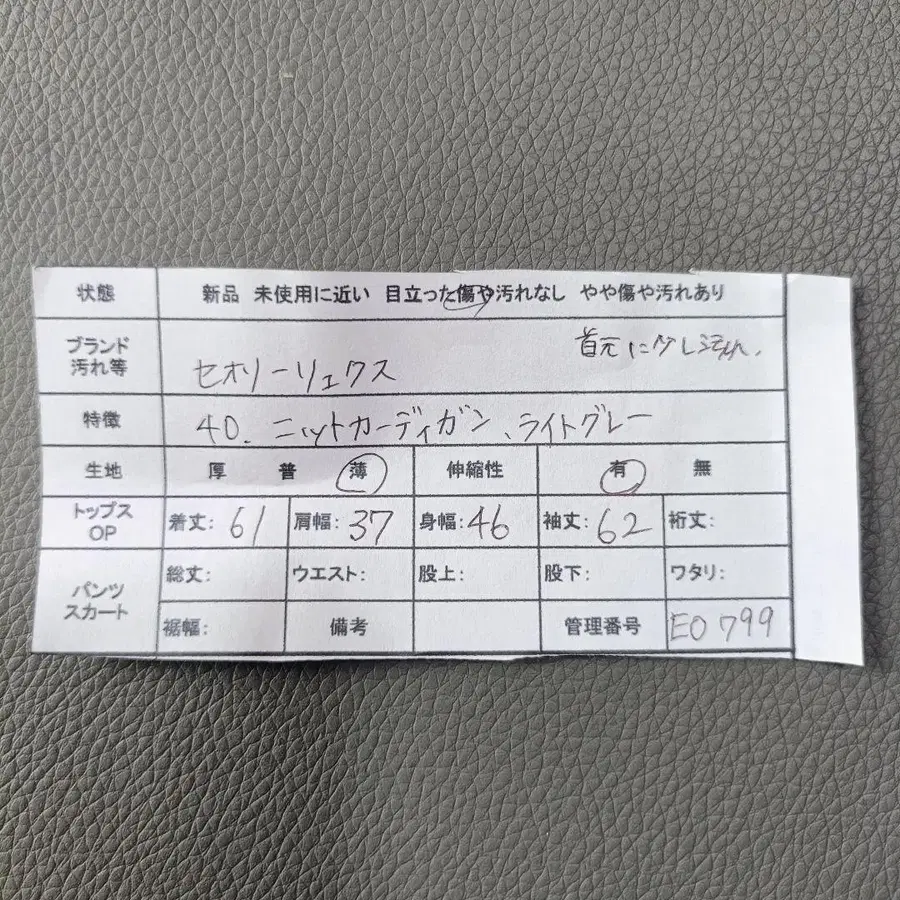 状態 新品 未使用に近い 目立った傷や汚れなし やや傷や汚れあり
ブランド 汚れ等 セオリーリュクス 首元に少し汚れ.
特徴 40. ニットカーディガン、ライトグレー
生地 厚 普 薄 伸縮性 有 無
トップス OP 着丈: 61 肩幅: 37 身幅: 46 袖丈: 62 裄丈:
パンツ スカート 総丈: ウエスト: 股上: 股下: ワタリ:
裾幅: 備考 管理番号 EO799